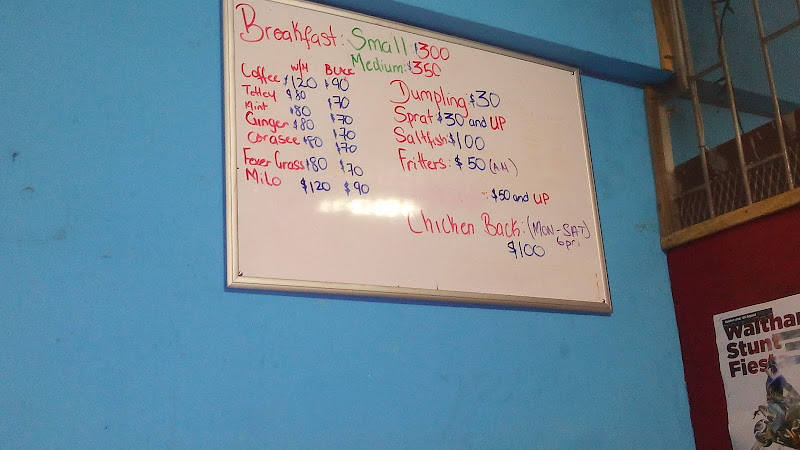 Breakfast: Small $300
Medium: $350
W/M
Coffee $120 $90
Tetley $80 $70
Mint $80 $70
Ginger $80 $70
Cerasee $80 $70
Fever Grass $80 $70
Milo $120 $90
Dumpling $30
Sprat $30 and UP
Saltfish $100
Fritters: $50 (A.M)
: $50 and UP
Chicken Back: (MON-SAT)
6pm
$100
Waltham
Stunt
Fiest